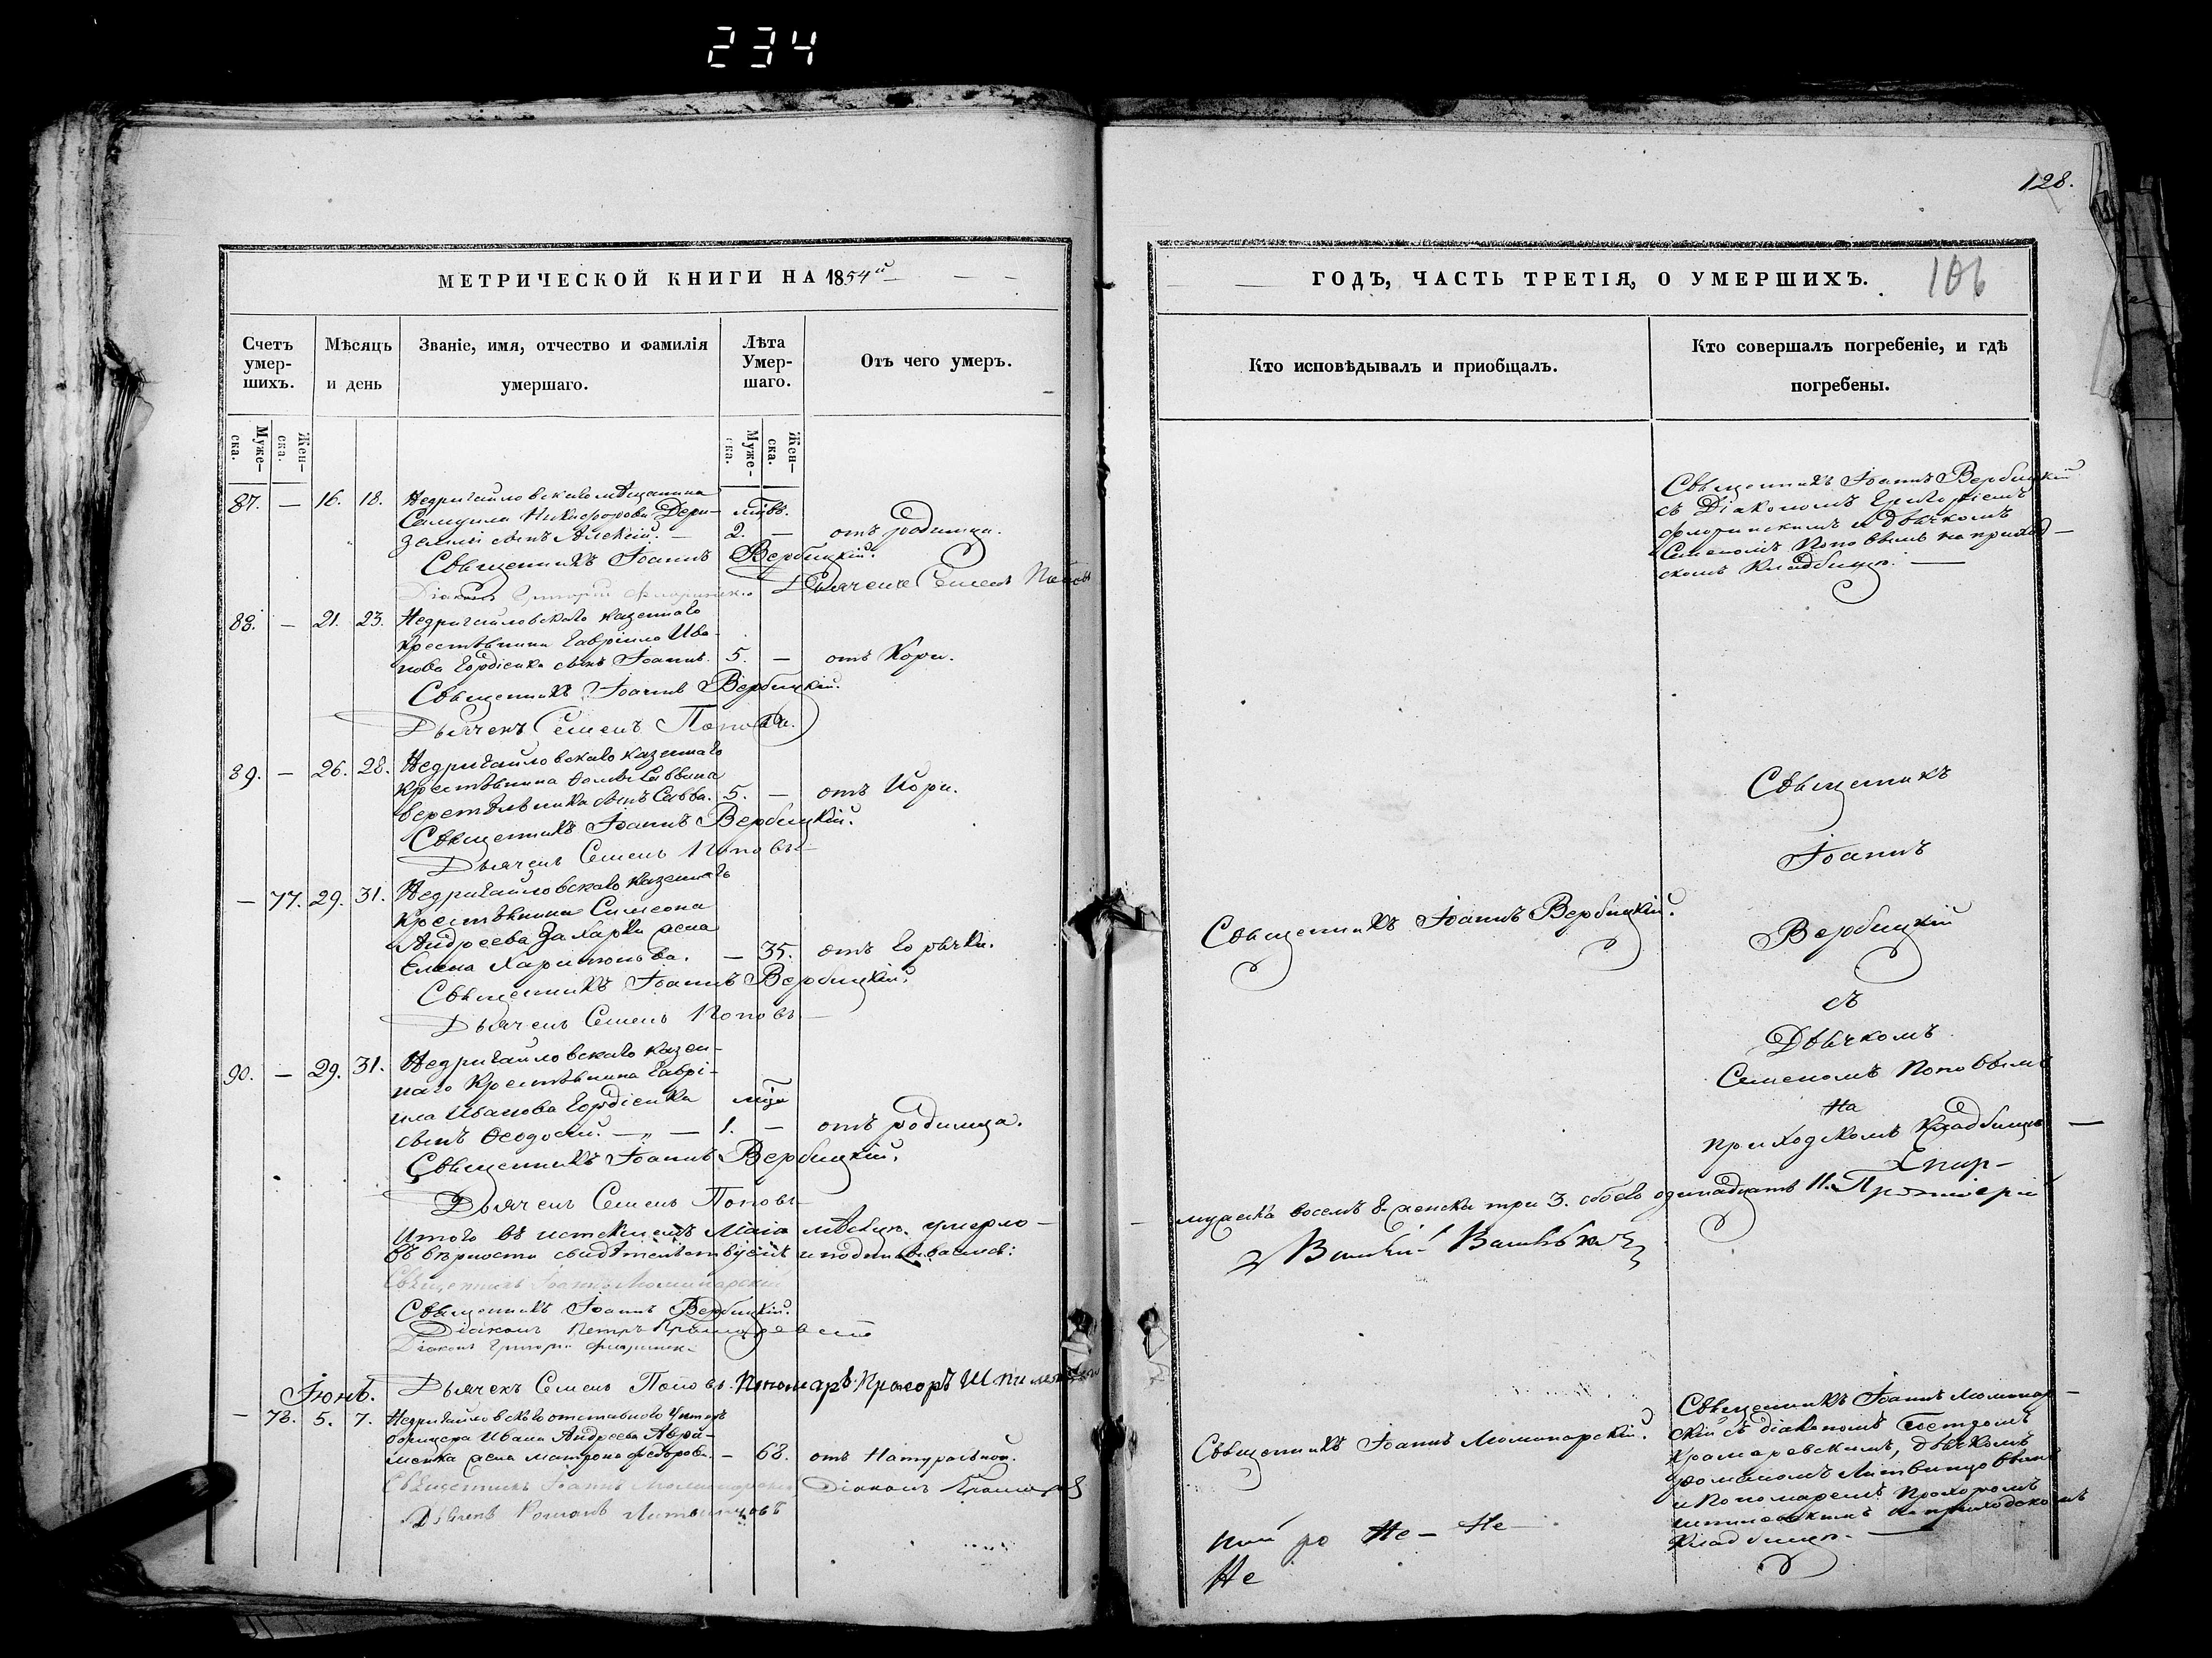 234
128.
МЕТРИЧЕСКОЙ КНИГИ НА 1854й
Счетъ умер-шихъ.
Мѣсяцъ и день
Званіе, имя, отчество и фамилія умершаго.
Лѣта Умер-шаго.
Отъ чего умеръ.
Муже-ска.
Жен-ска.
Муже-ска.
Жен-ска.
87. — 16. 18. Недригайловскаго мѣщанина
Самуила Никифорова Дери-
земли сынъ Алексій. — 2. — отъ родимца.
Священникъ Іоаннъ Вербицкій.
Діаконъ Григорій Дьячекъ Семенъ Поповъ
88. — 21. 23. Недригайловскаго казеннаго
крестьянина Гавріила Ива-
нова Гордіенка сынъ Іоаннъ. 5. — отъ Кори.
Священникъ Іоаннъ Вербицкій.
Дьячекъ Семенъ Поповъ.
89. — 26. 28. Недригайловскаго казеннаго
крестьянина Саввина
сынъ Савва. 5. — отъ Кори.
Священникъ Іоаннъ Вербицкій.
Дьячекъ Семенъ Поповъ
— 77. 29. 31. Недригайловскаго казеннаго
крестьянина Симеона
Андреева Захарки жена
Елена Харитонова. — 35. отъ Горячки.
Священникъ Іоаннъ Вербицкій.
Дьячекъ Семенъ Поповъ
90. — 29. 31. Недригайловскаго казен-
наго крестьянина Гаврі-
ила Иванова Гордіенка
сынъ Ѳеодосій. — „ — 1. — отъ родимца.
Священникъ Іоаннъ Вербицкій.
Дьячекъ Семенъ Поповъ
Итого въ истекшемъ Маіа мѣсяцѣ умерло —
въ вѣрности свидѣтельствуемъ и подписываемся:
Священникъ Іоаннъ
Священникъ Іоаннъ Вербицкій.
Діаконъ Петръ
Діаконъ Григорій
Дьячекъ Семенъ Поповъ. Пономарь Прохоръ
Іюнь.
— 78. 5. 7. Недригайловскаго отставного унтеръ
офицера Ивана Андреева Аври-
менка жена Матрона Федорова. — 68. отъ Натуральной.
Священникъ Іоаннъ Діаконъ
Дьячекъ Романъ Литвинцовъ
ГОДЪ, ЧАСТЬ ТРЕТІЯ, О УМЕРШИХЪ.
106
Кто исповѣдывалъ и приобщалъ.
Кто совершалъ погребеніе, и гдѣ погребены.
Священникъ Іоаннъ Вербицкій
съ Діакономъ Григоріемъ
и дьячкомъ
Семеномъ Поповымъ на приход-
скомъ Кладбищѣ. —
Священникъ
Іоаннъ
Вербицкій
съ
Дьячкомъ
Семеномъ Поповымъ
На
приходскомъ Кладбищѣ —
Священникъ Іоаннъ Вербицкій.
мужеска восемь 8. женска три 3. обоего одинадцать 11.
Священникъ Іоаннъ
Священникъ Іоаннъ
съ діакономъ Петромъ
дьячкомъ
Романомъ Литвинцовымъ
и Пономаремъ Прохоромъ
на приходскомъ
Кладбищѣ. —
Не — Не —
Не